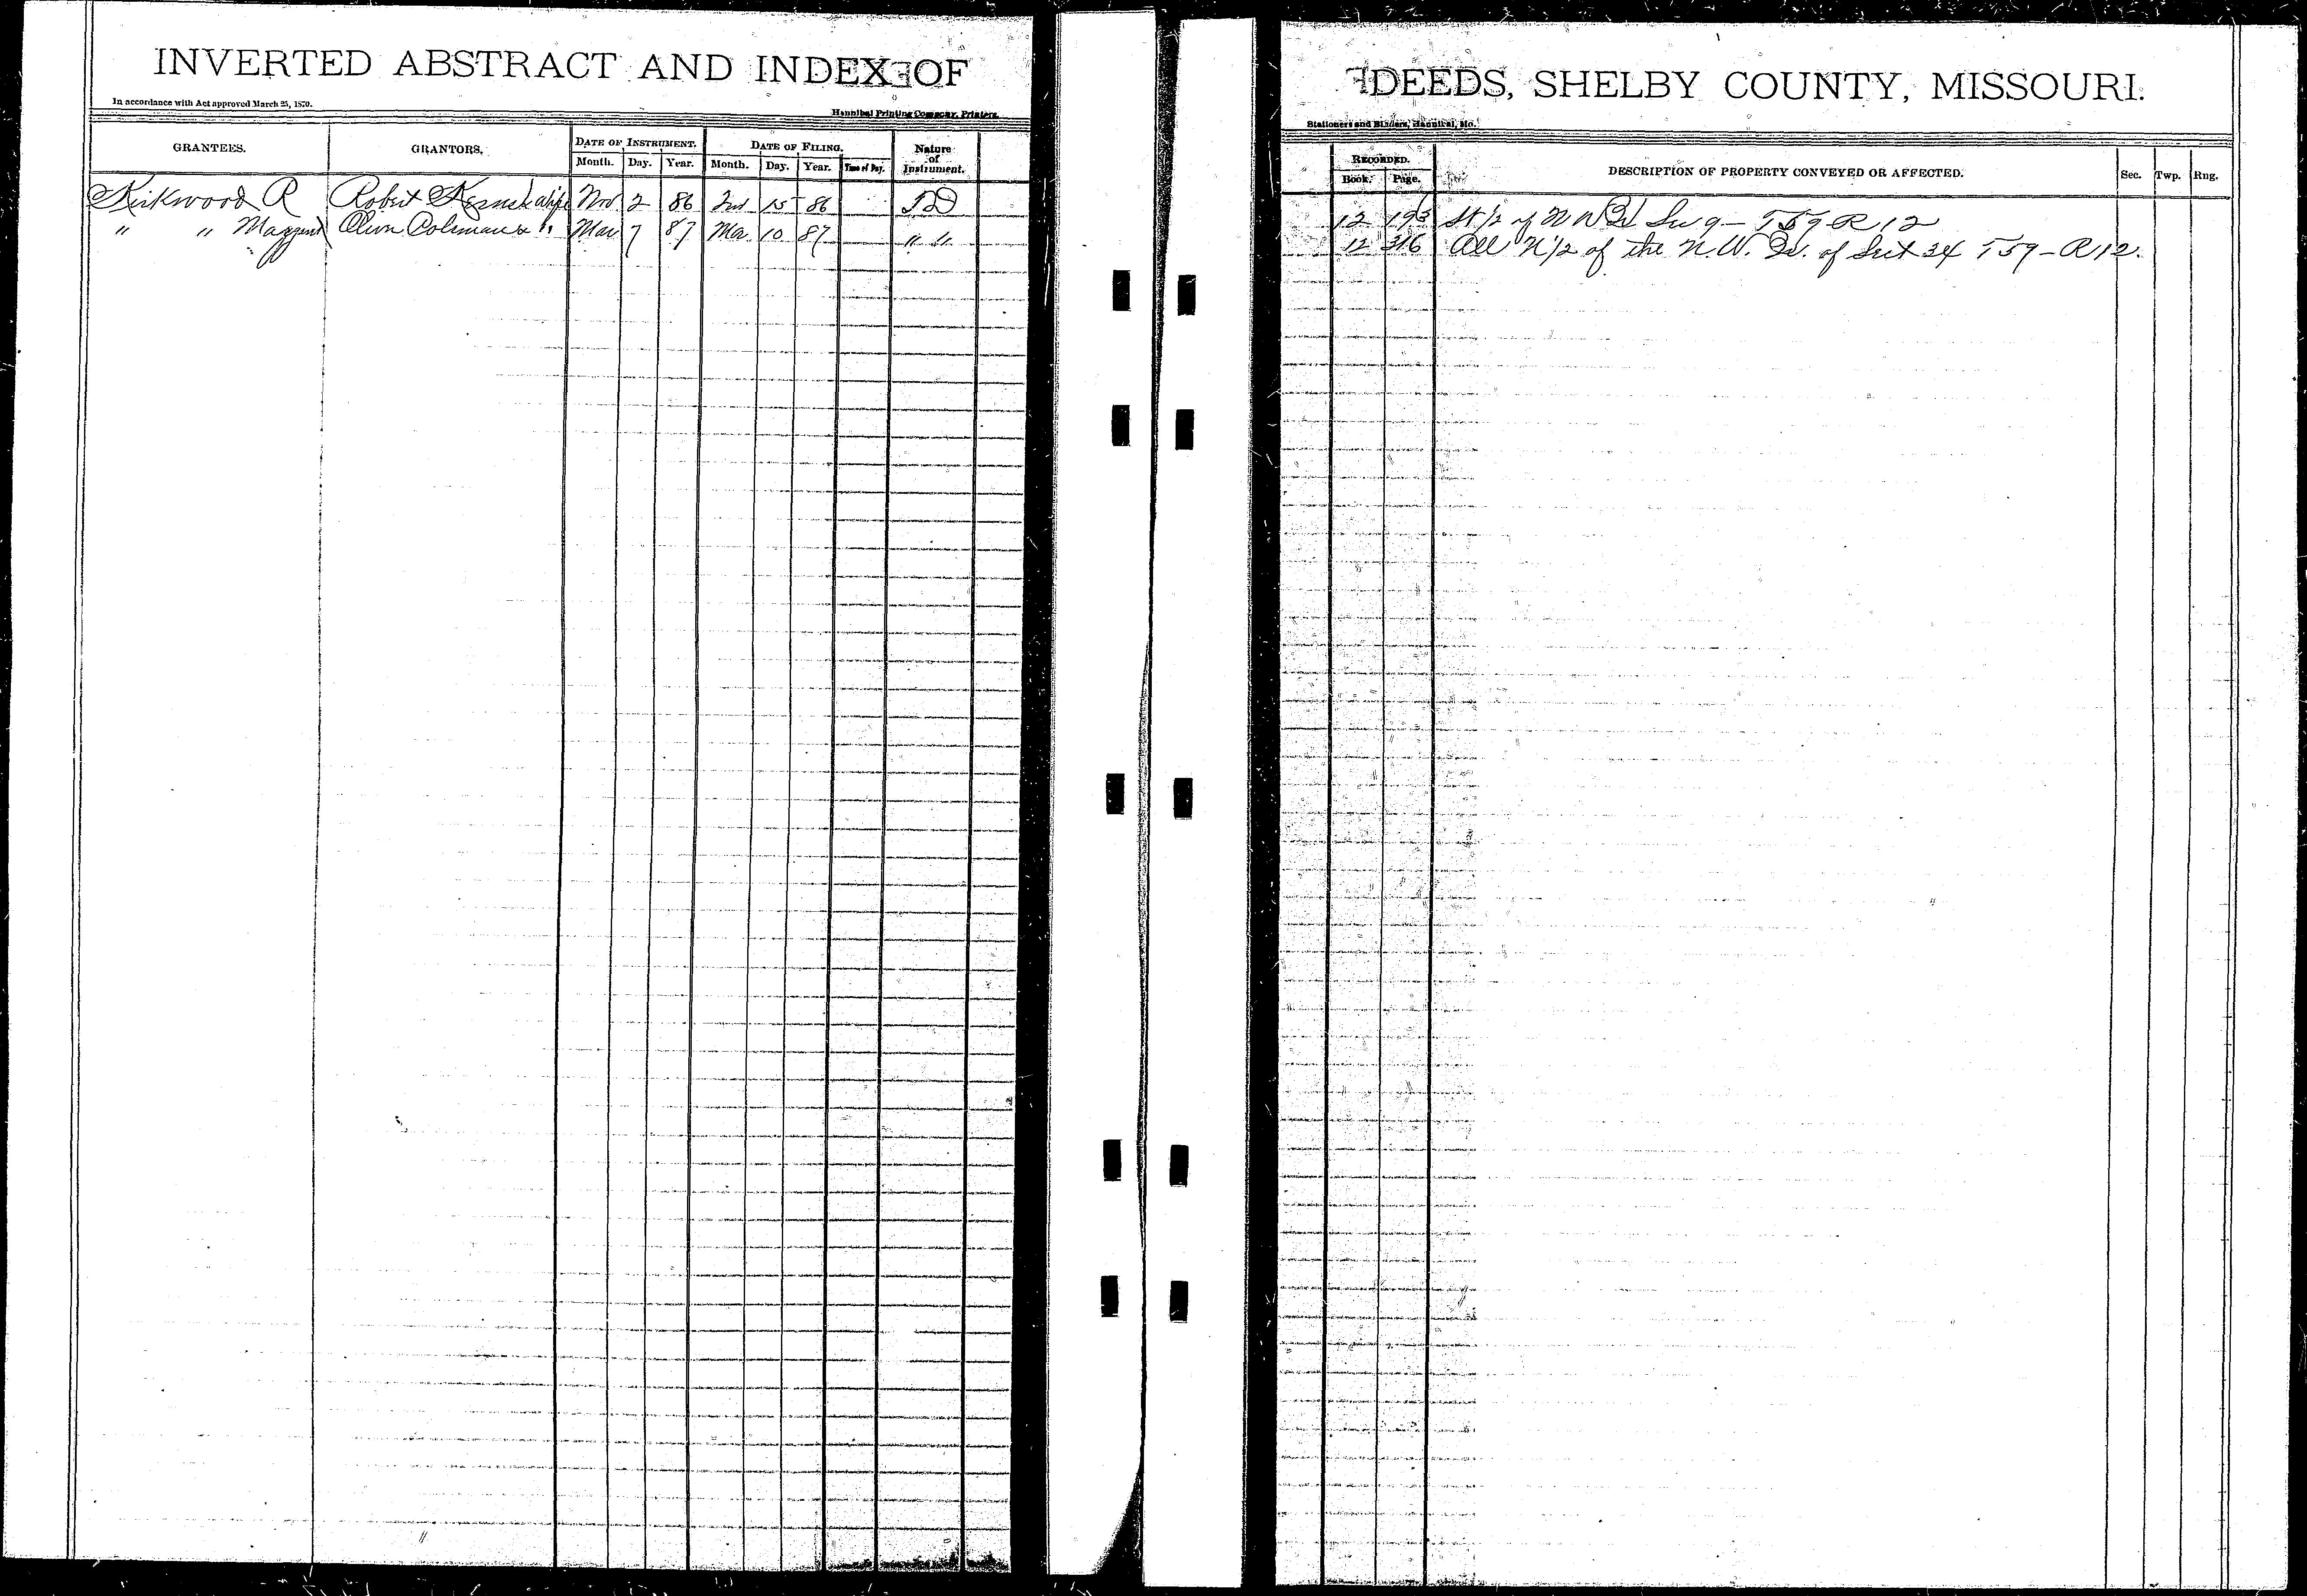 INVERTED ABSTRACT AND INDEX OF
DEEDS, SHELBY COUNTY, MISSOURI.
In accordance with Act approved March 25, 1870.
Hannibal Printing Company, Printers,
Stationers and Binders, Hannibal, Mo.
GRANTEES. GRANTORS. DATE OF INSTRUMENT. DATE OF FILING. Nature of Instrument.
Month. Day. Year. Month. Day. Year. Time of Day.
RECORDED. DESCRIPTION OF PROPERTY CONVEYED OR AFFECTED. Sec. Twp. Rng.
Book. Page.
Kirkwood R Robert wife Nov 2 86 15 86 12 193 of N W 9 - T 59 R 12
" " Oliver Coleman & Mar 7 87 Mar 10 87 " " 12 316 All N 1/2 of the N.W. Qr. of Sect 34 T 59 - R 12.